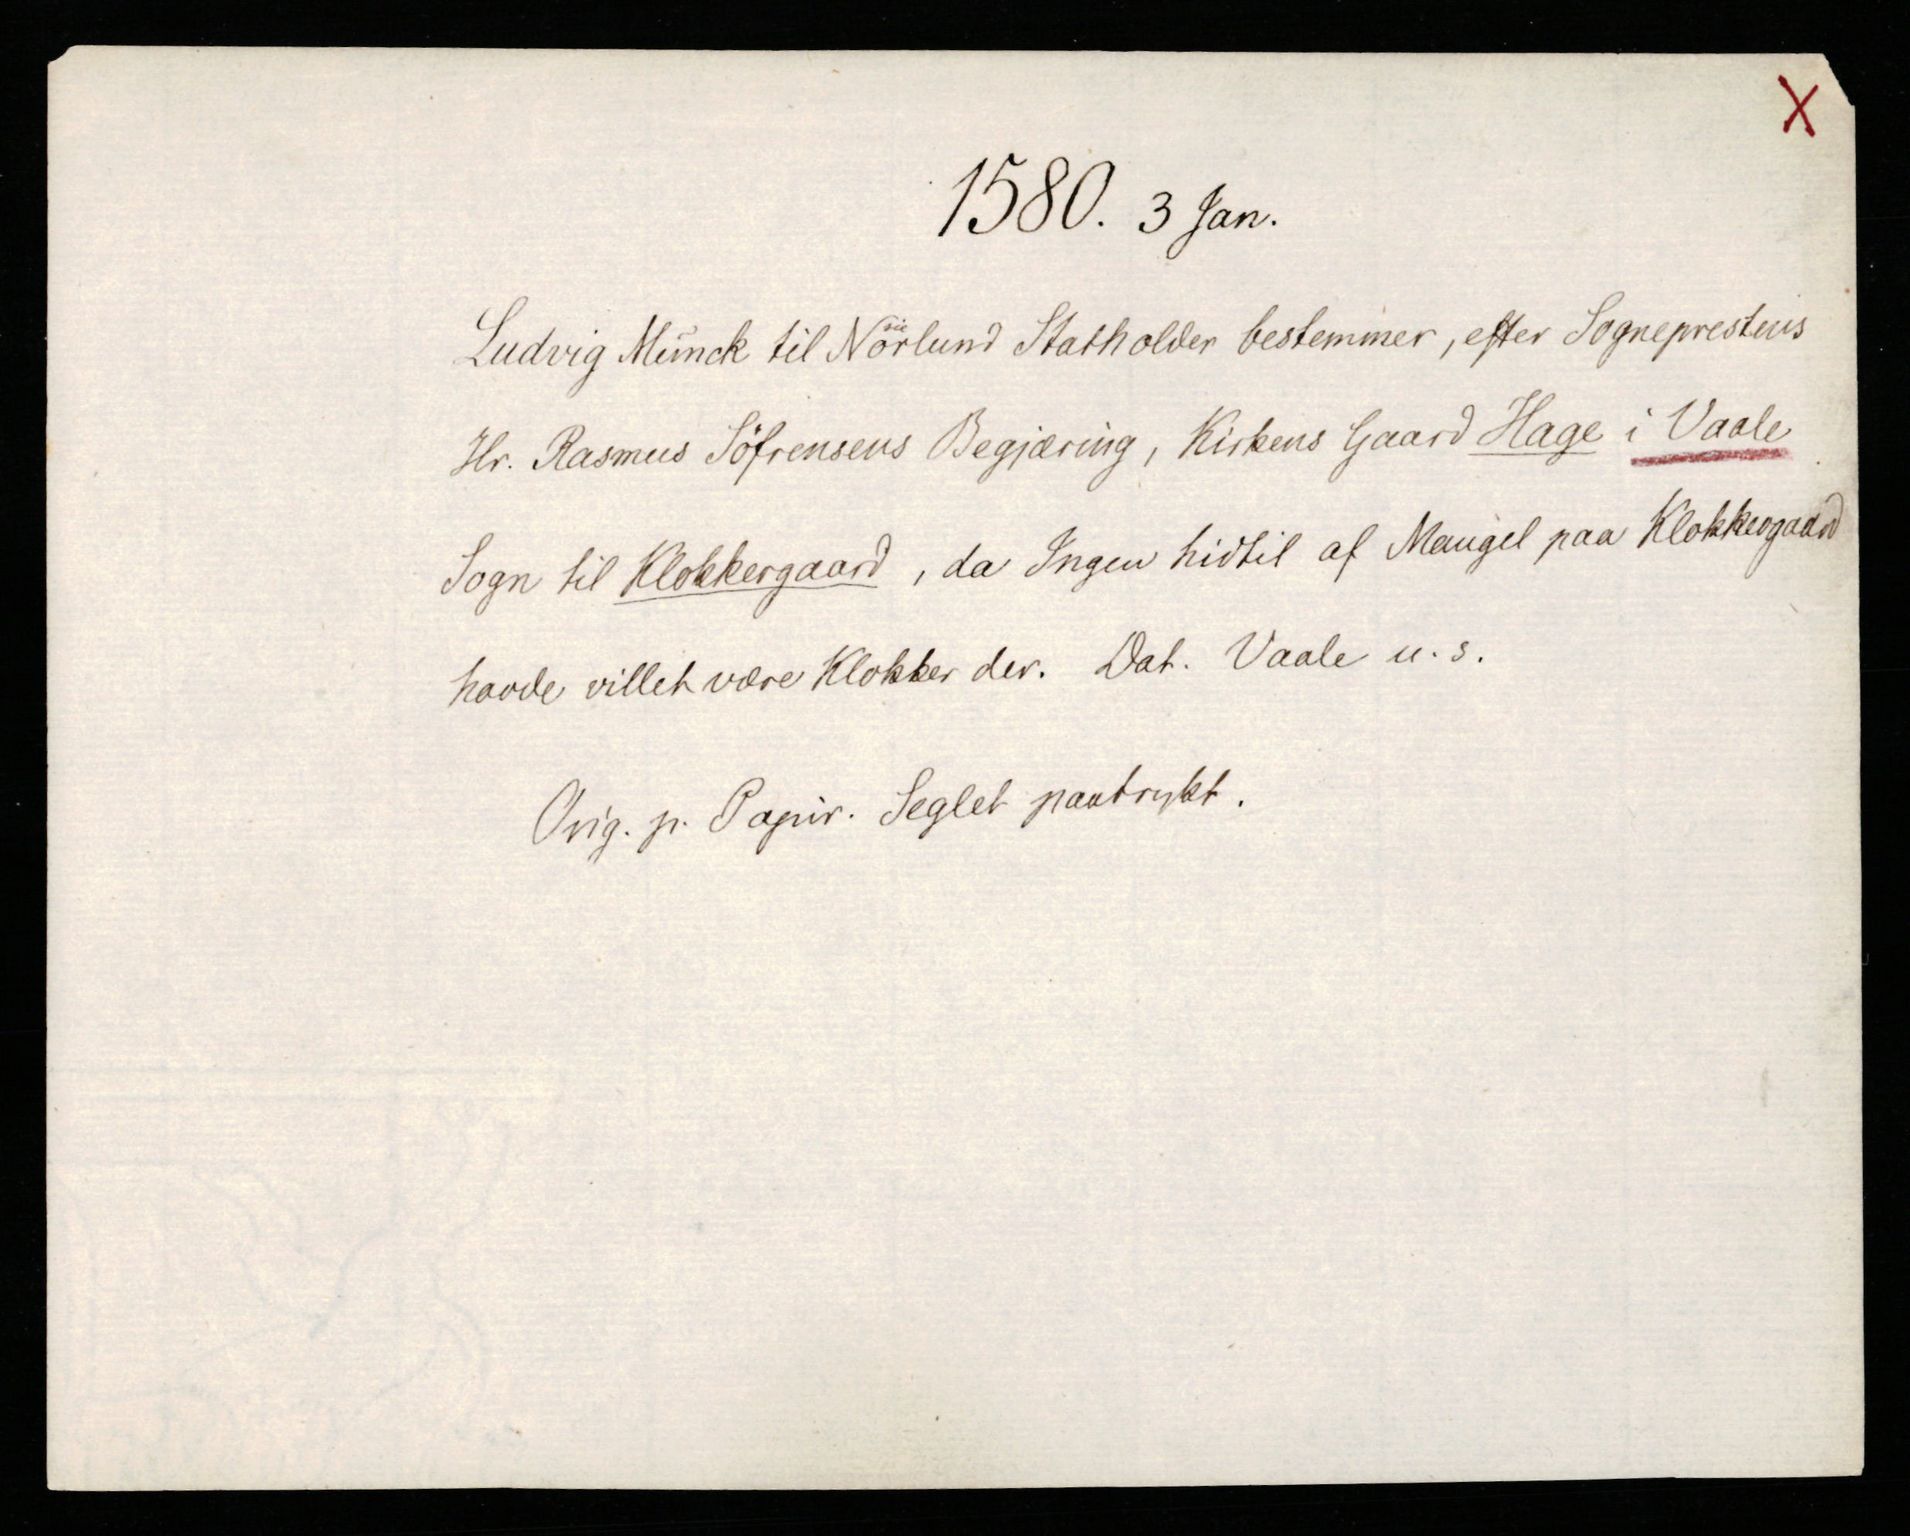 X
1580. 3 Jan.
sic
Ludvig Munck til Nörlund Statholder bestemmer, efter Sogneprestens
Hr. Rasmus Söfrensens Begjæring, Kirkens Gaard Hage i Vaale
Sogn til Klokkergaard, da Ingen hidtil af Mangel paa Klokkergaard
havde villet være Klokker der. Dat. Vaale u. s.
Orig. p. Papir. Seglet paatrykt.